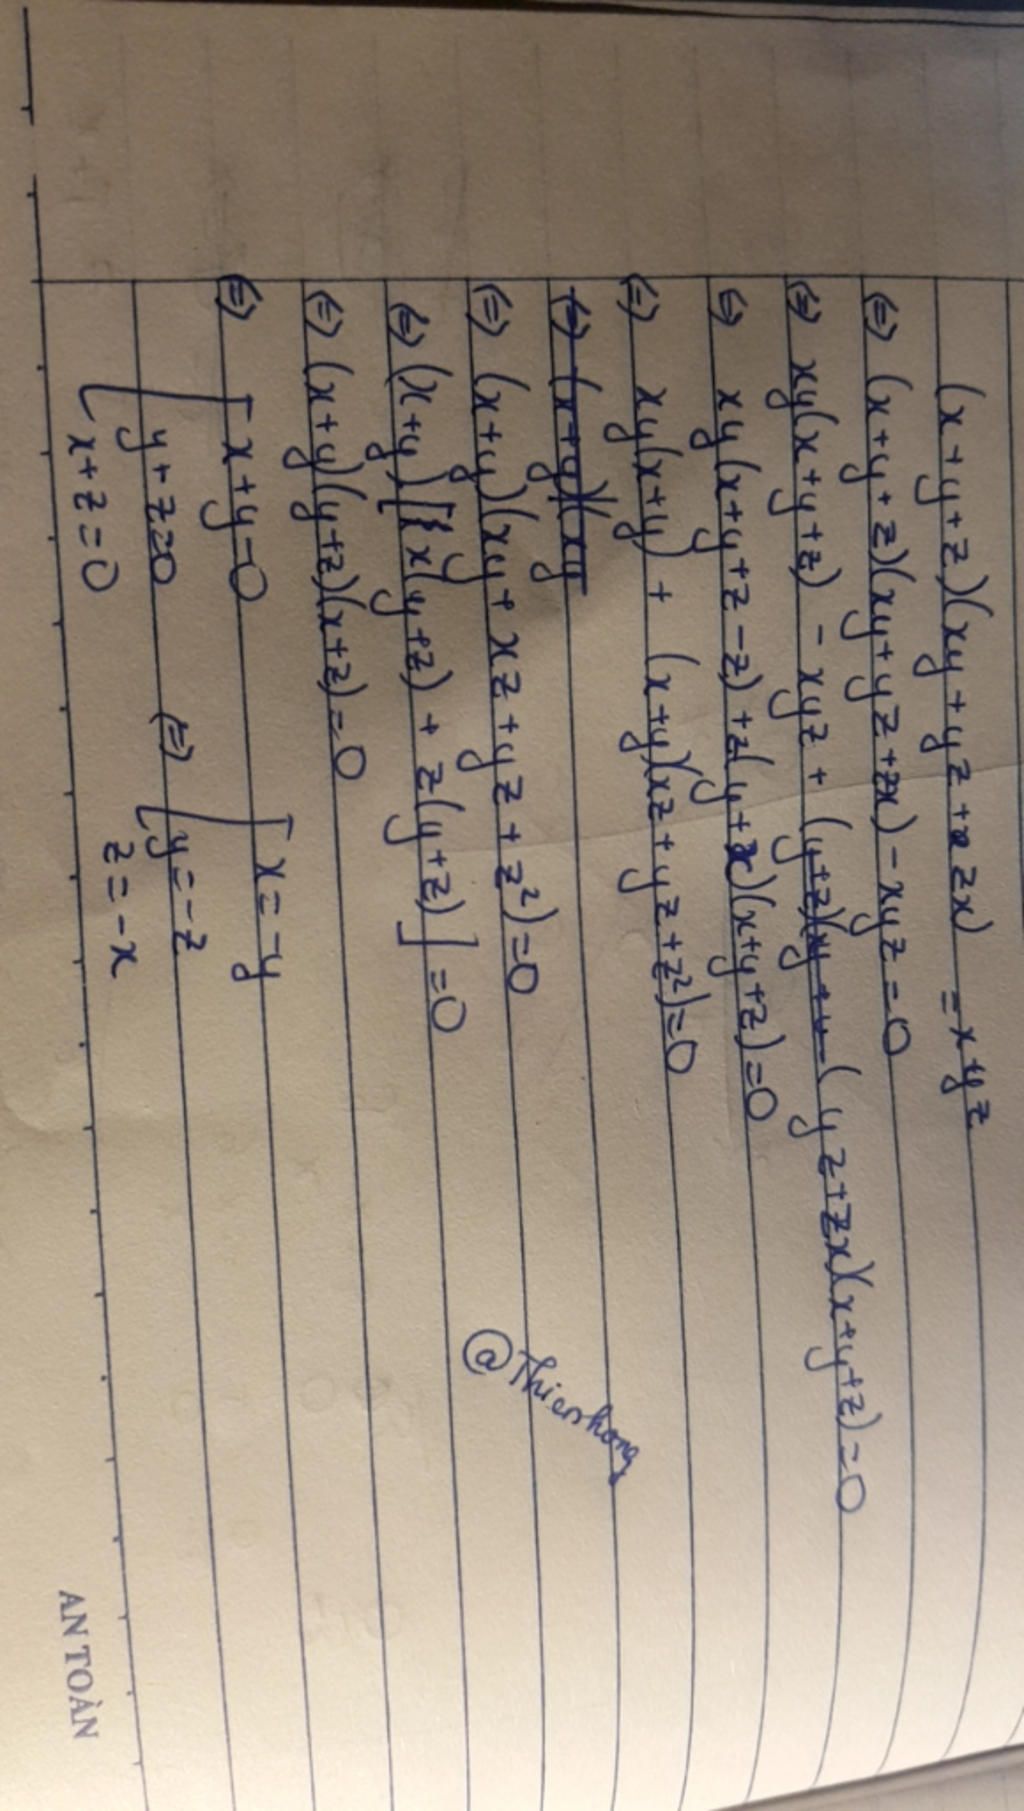 (x+y+z)(xy+yz+zx) = xyz
⇔ (x+y+z)(xy+yz+zx) - xyz = 0
⇔ xy(x+y+z) - xyz + (yz+zx)(x+y+z) = 0
⇔ xy(x+y+z-z) + z(y+x)(x+y+z) = 0
⇔ xy(x+y) + (x+y)(xz+yz+z²) = 0
⇔ (x+y)(xy
⇔ (x+y)(xy+xz+yz+z²) = 0
⇔ (x+y)[x(y+z) + z(y+z)] = 0
⇔ (x+y)(y+z)(x+z) = 0
⇔ [ x+y=0 ⇔ [ x=-y
y+z=0 y=-z
x+z=0 z=-x
@Thienhong
AN TOÀN